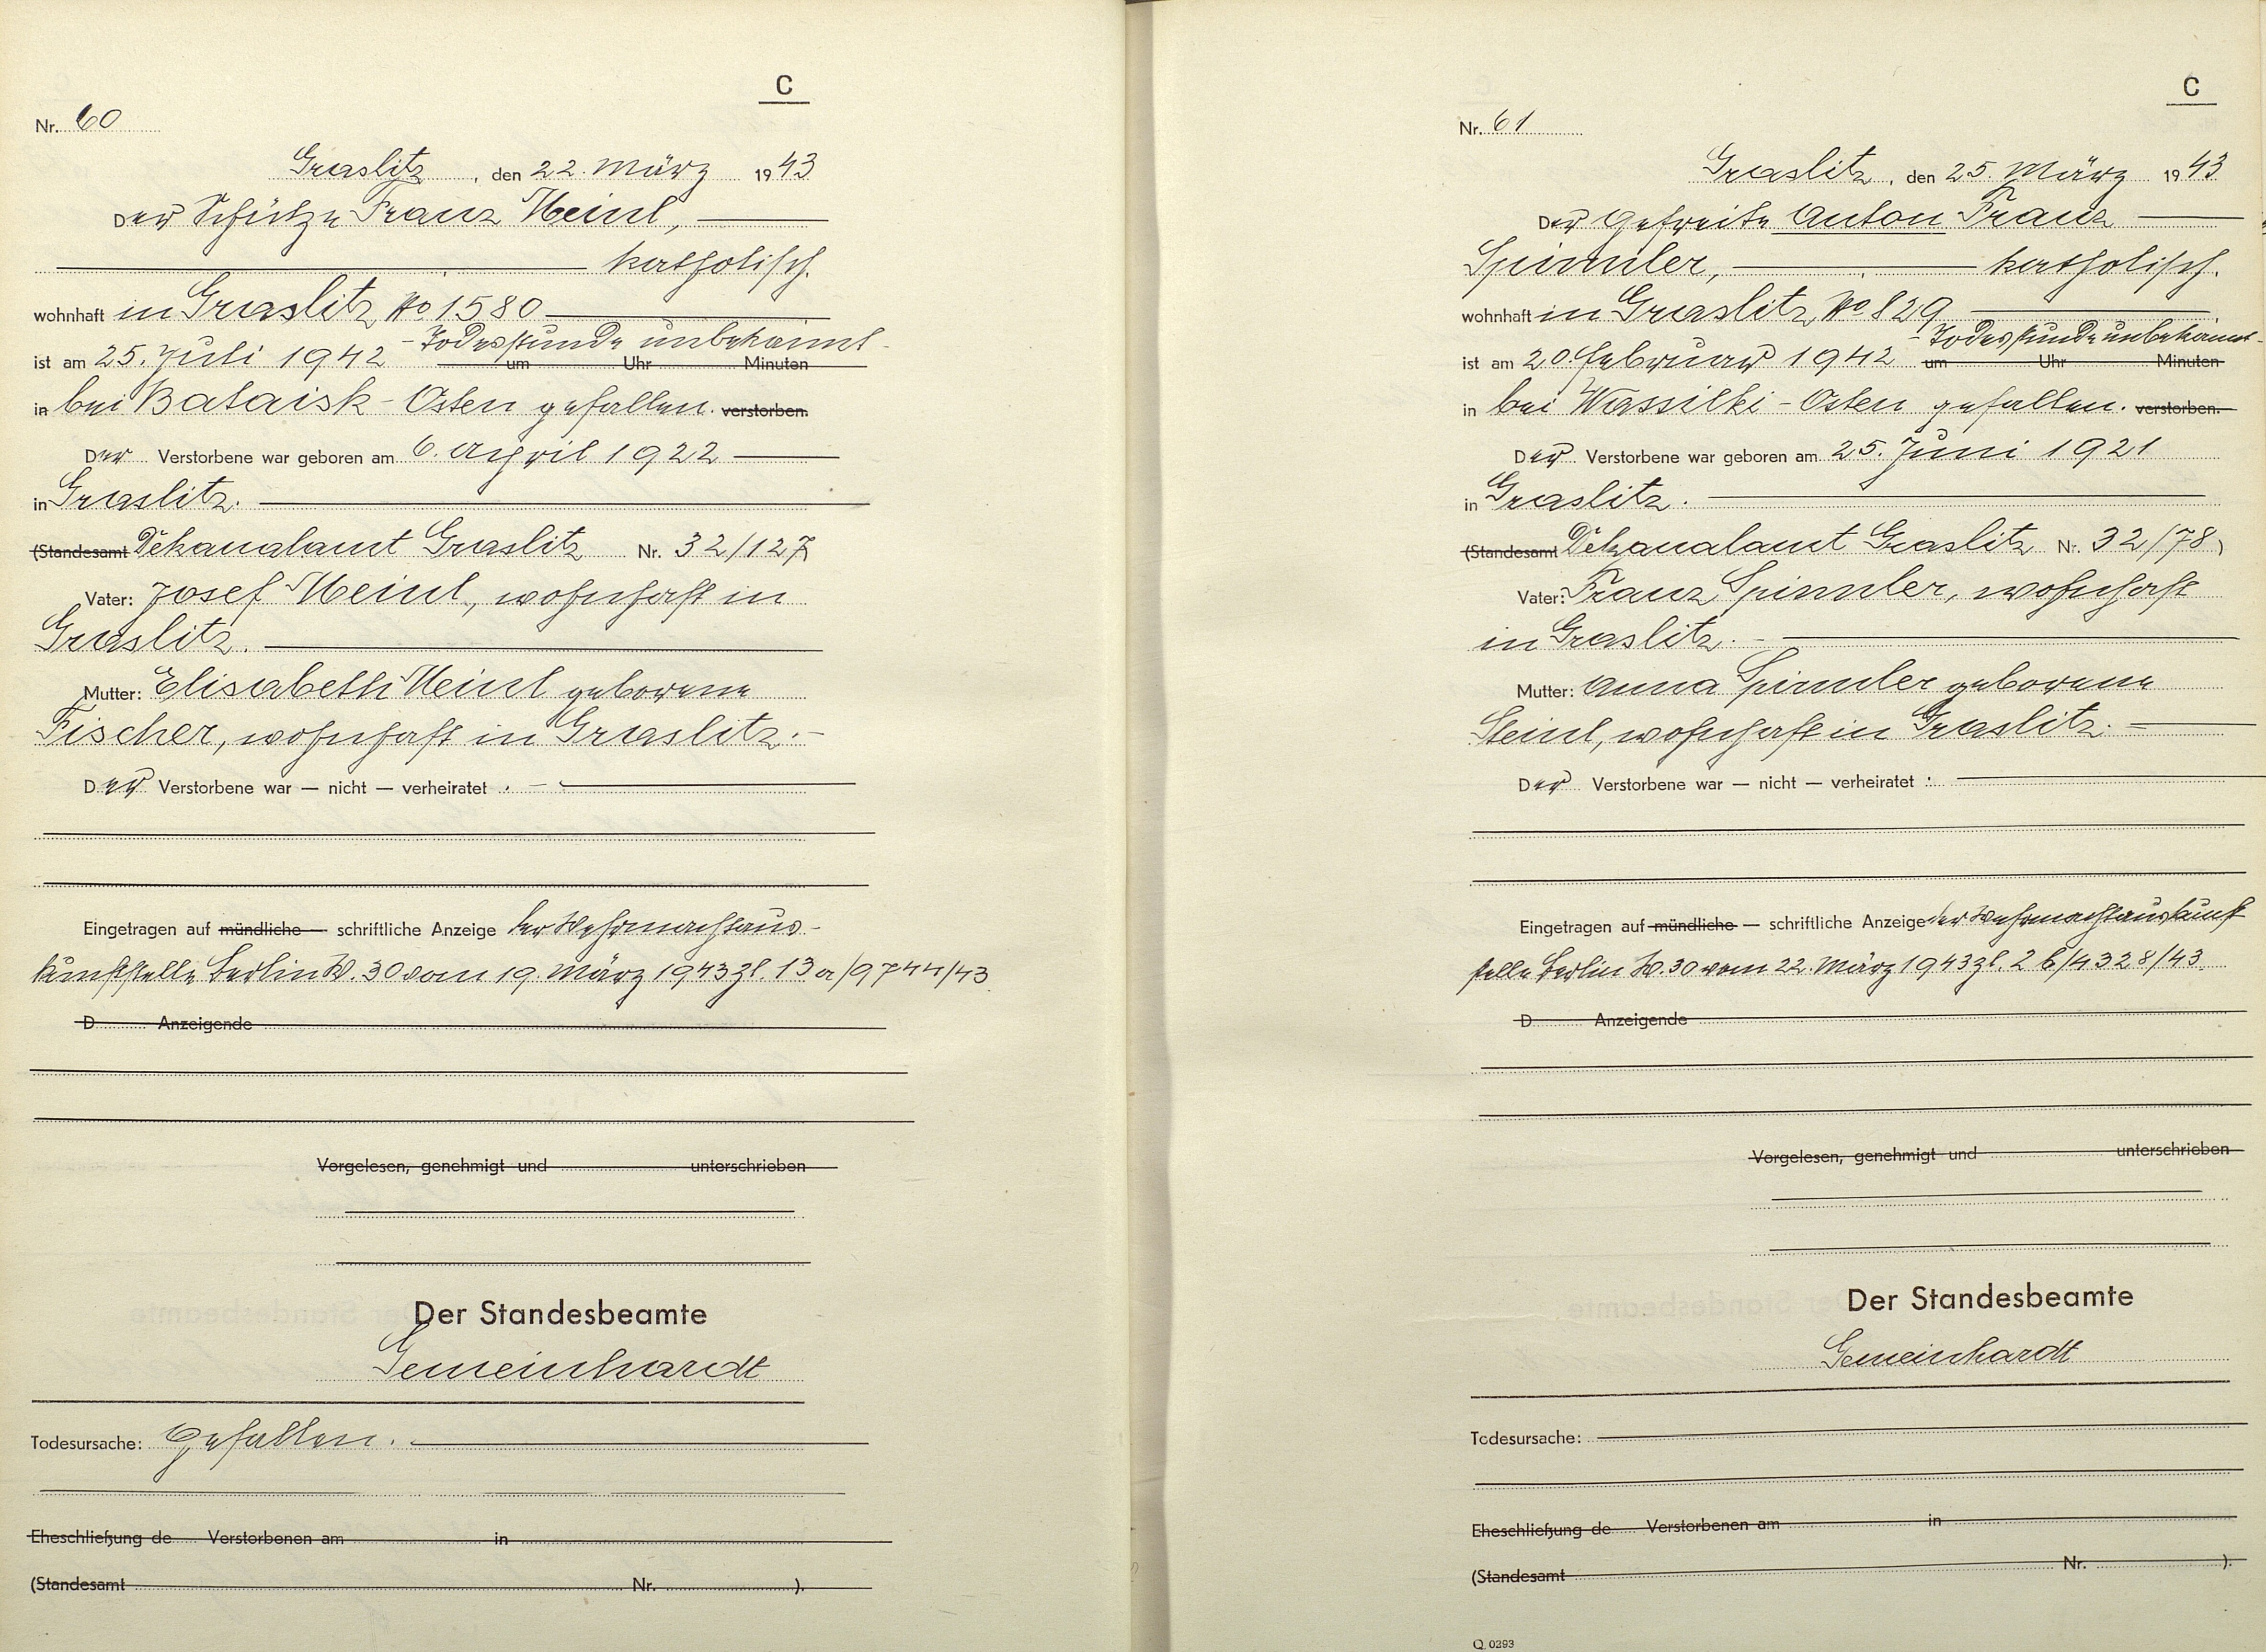 C
Nr. 60
Graslitz, den 22. März 1943
Der Schütze Franz Meinl,
katholisch.
wohnhaft in Graslitz No 1580
- Todesstunde unbekannt -
ist am 25. Juli 1942 um Uhr Minuten
in bei Bataisk - Osten gefallen. verstorben.
Der Verstorbene war geboren am 6. April 1922
in Graslitz.
(Standesamt Dekanalamt Graslitz Nr. 32/127)
Vater: Josef Meinl, wohnhaft in
Graslitz.
Mutter: Elisabeth Meinl geborene
Fischer, wohnhaft in Graslitz. -
Der Verstorbene war — nicht — verheiratet.
Eingetragen auf mündliche — schriftliche Anzeige der Wehrmachtaus-
kunftstelle Berlin W. 30 vom 19. März 1943 Zl. 13 a/9744/43
D Anzeigende
Vorgelesen, genehmigt und unterschrieben
Der Standesbeamte
Gemeinhardt
Todesursache: Gefallen.
Eheschließung de Verstorbenen am in
(Standesamt Nr. ).
C
Nr. 61
Graslitz, den 25. März 1943
Der Gefreite Anton Franz
Spinnler, katholisch.
wohnhaft in Graslitz No 829
- Todesstunde unbekannt -
ist am 20. Februar 1942 um Uhr Minuten
in bei Wassilki - Osten gefallen. verstorben.
Der Verstorbene war geboren am 25. Juni 1921
in Graslitz.
(Standesamt Dekanalamt Graslitz Nr. 32/78)
Vater: Franz Spinnler, wohnhaft
in Graslitz. -
Mutter: Anna Spinnler geborene
wohnhaft in Graslitz.
Der Verstorbene war — nicht — verheiratet.
Eingetragen auf mündliche — schriftliche Anzeige der Wehrmachtauskunft
stelle Berlin W. 30 vom 22. März 1943 Zl. 2 b/4328/43.
D Anzeigende
Vorgelesen, genehmigt und unterschrieben
Der Standesbeamte
Gemeinhardt
Todesursache:
Eheschließung de Verstorbenen am in
(Standesamt Nr. ).
Q. 0293